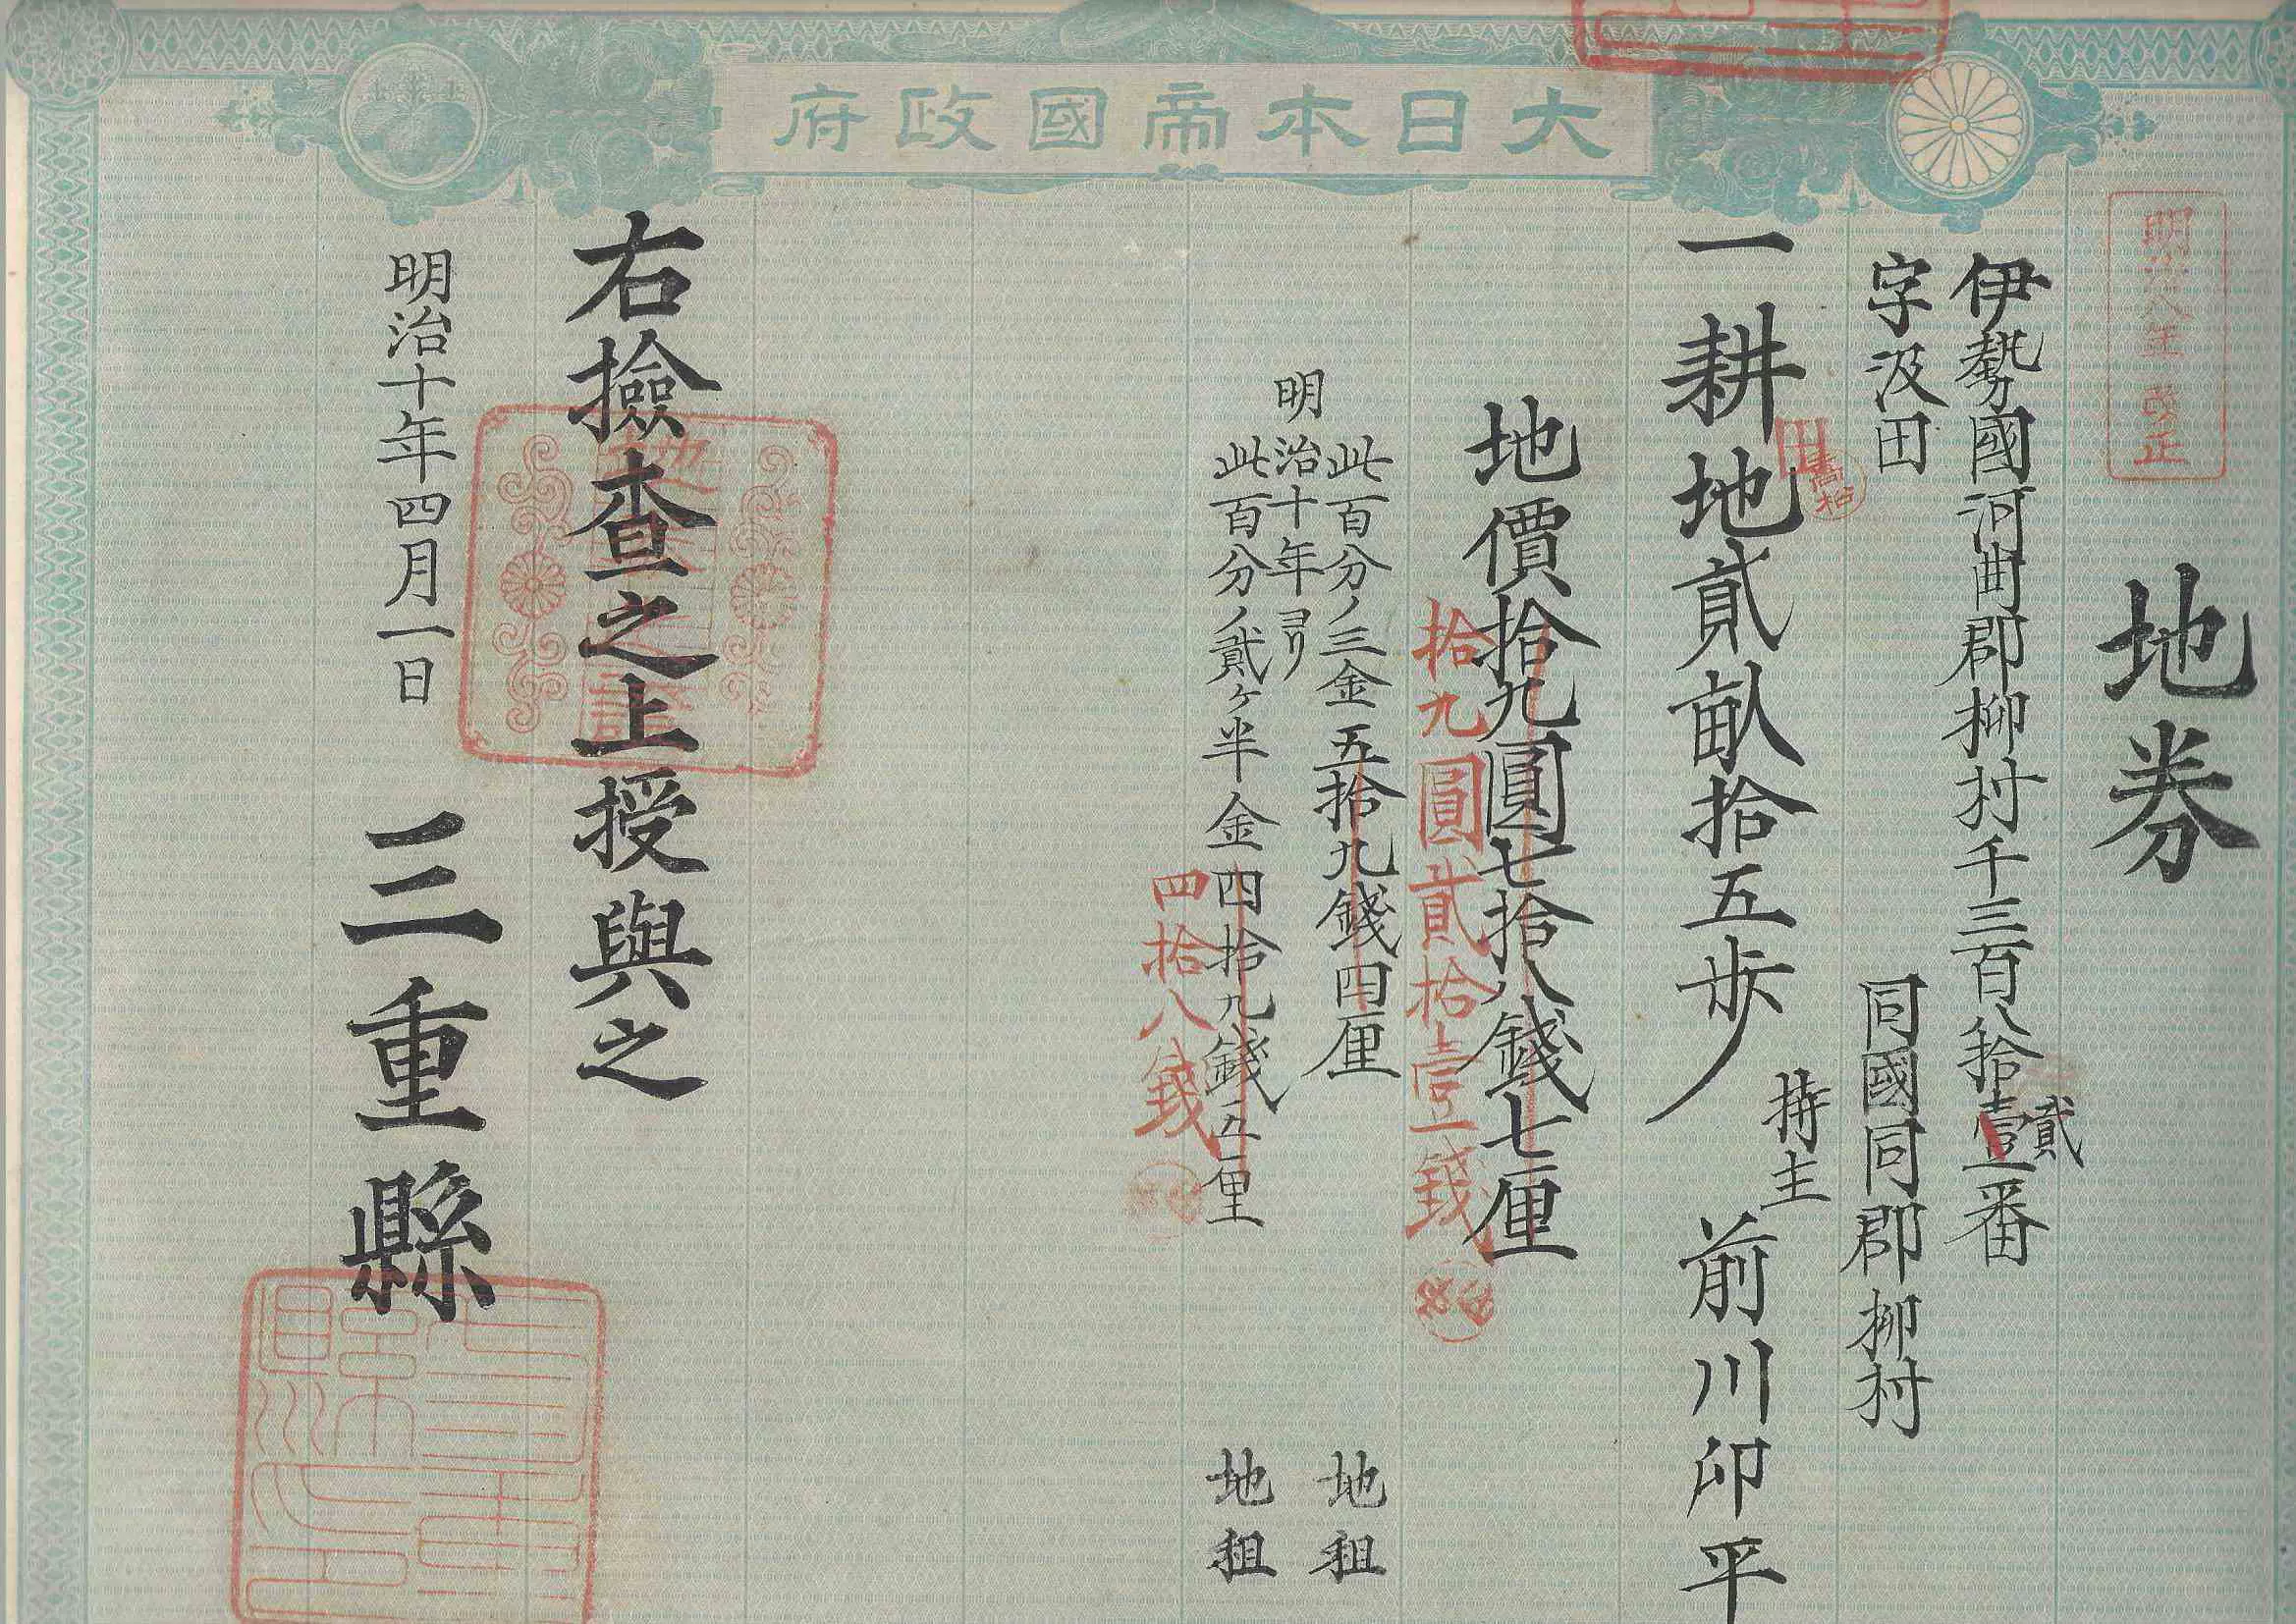 大日本帝國政府
明治八年改正
地券
伊勢國河曲郡柳村千三百八拾壹番
貳
字汲田
同國同郡柳村
持主
一耕地貳畝拾五歩
前川卯平
田
地價拾九圓七拾八錢七厘
拾九圓貳拾壹錢
此百分ノ三金五拾九錢四厘
地租
明治十年ヨリ
此百分ノ貳ヶ半金四拾九錢五厘
地租
四拾八錢
右撿查之上授與之
明治十年四月一日
三重縣